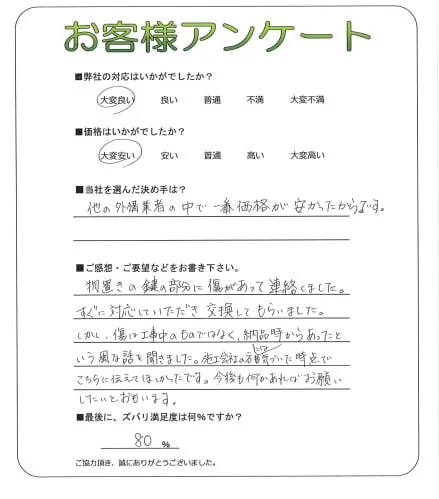 お客様アンケート
■弊社の対応はいかがでしたか？
大変良い 良い 普通 不満 大変不満
■価格はいかがでしたか？
大変安い 安い 普通 高い 大変高い
■当社を選んだ決め手は？
他の外構業者の中で一番価格が安かったからです。
■ご感想・ご要望などをお書き下さい。
物置きの鍵の部分に傷があって連絡しました。
すぐに対応していただき交換してもらいました。
しかし、傷は工事中のものではなく、納品時からあったと
いう風な話を聞きました。施工会社の気づいた時点で
こちらに伝えてほしかったです。今後も何かあればお願い
したいとおもいます。
■最後に、ズバリ満足度は何％ですか？
80 %
ご協力頂き、誠にありがとうございました。